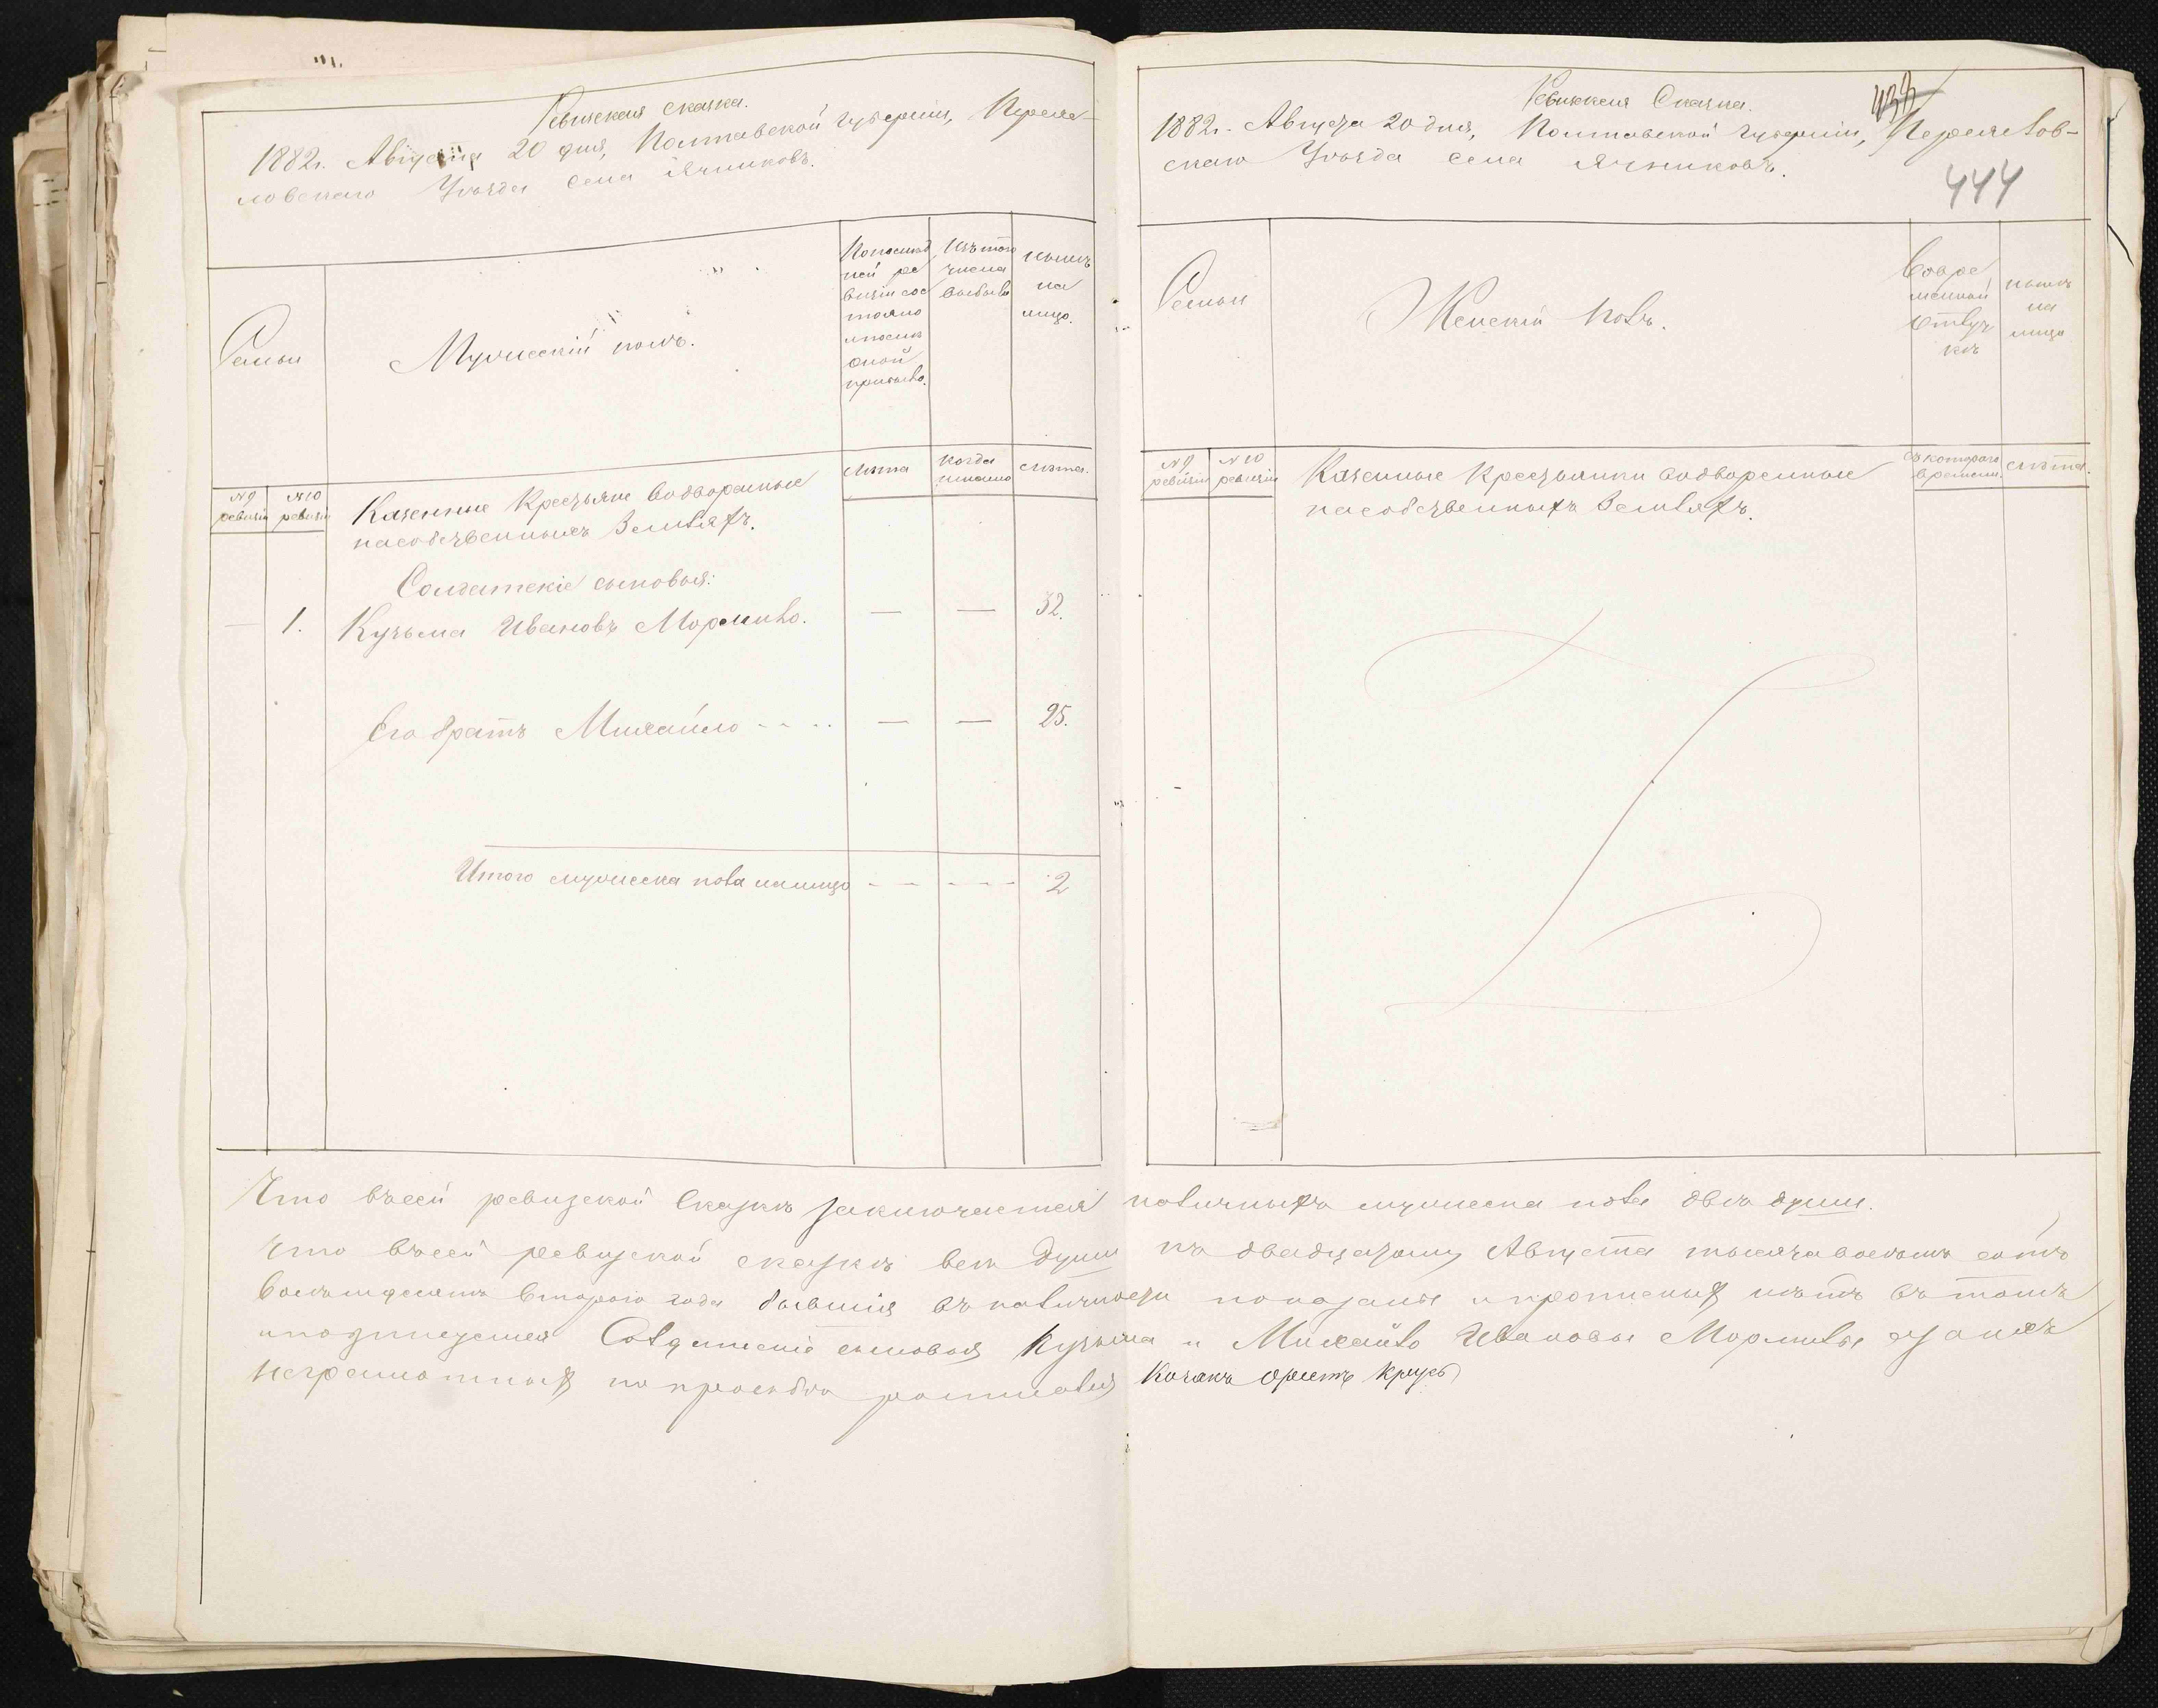 Ревизская сказка.
1882г. Августа 20 дня, Полтавской губерніи, Перея-
словскаго Уѣзда Села Ячниковъ.
Семьи
Мужескій полъ.
По послѣд
ней ре
визіи сос
тояло
и послѣ
оной
прибыло.
Изъ того
числа
выбыло
нынѣ
на
лицо.
№ 9
ревизіи
№ 10
ревизіи
Казенные Крестьяне водворенные
на собственныхъ Земляхъ.
Лѣта
когда
именно
Лѣта.
Солдатскіе сыновья:
— 1. Кузьма Ивановъ Мормило. — — 32.
Его братъ Михайло - - - - — — 25.
Итого мужеска пола налицо - - - - - 2
Ревизская Сказка.
438
1882г. Августа 20 дня, Полтавской губерніи, Переяслов-
скаго Уѣзда села Ячниковъ.
444
Семьи
Женскій полъ.
Во вре
менной
отлуч
кѣ
нынѣ
на
лицо
№ 9
ревизіи
№ 10
ревизіи
Казенные Крестьянки водворенные
на собственныхъ Земляхъ.
Съ котораго
времени.
Лѣта.
Что въ сей ревизской Сказкѣ заключается наличныхъ мужеска пола двѣ души.
Что въ сей ревизской сказкѣ всѣ души къ двадцатому Августа тысяча восемь сотъ
восемьдесятъ второго года бывшія въ наличности показаны и прописныхъ нѣтъ въ томъ
и подписуемся Солдатскіе сыновья Кузьма и Михайло Ивановы Мормилы а за нихъ
неграмотныхъ по просьбѣ росписался Козакъ